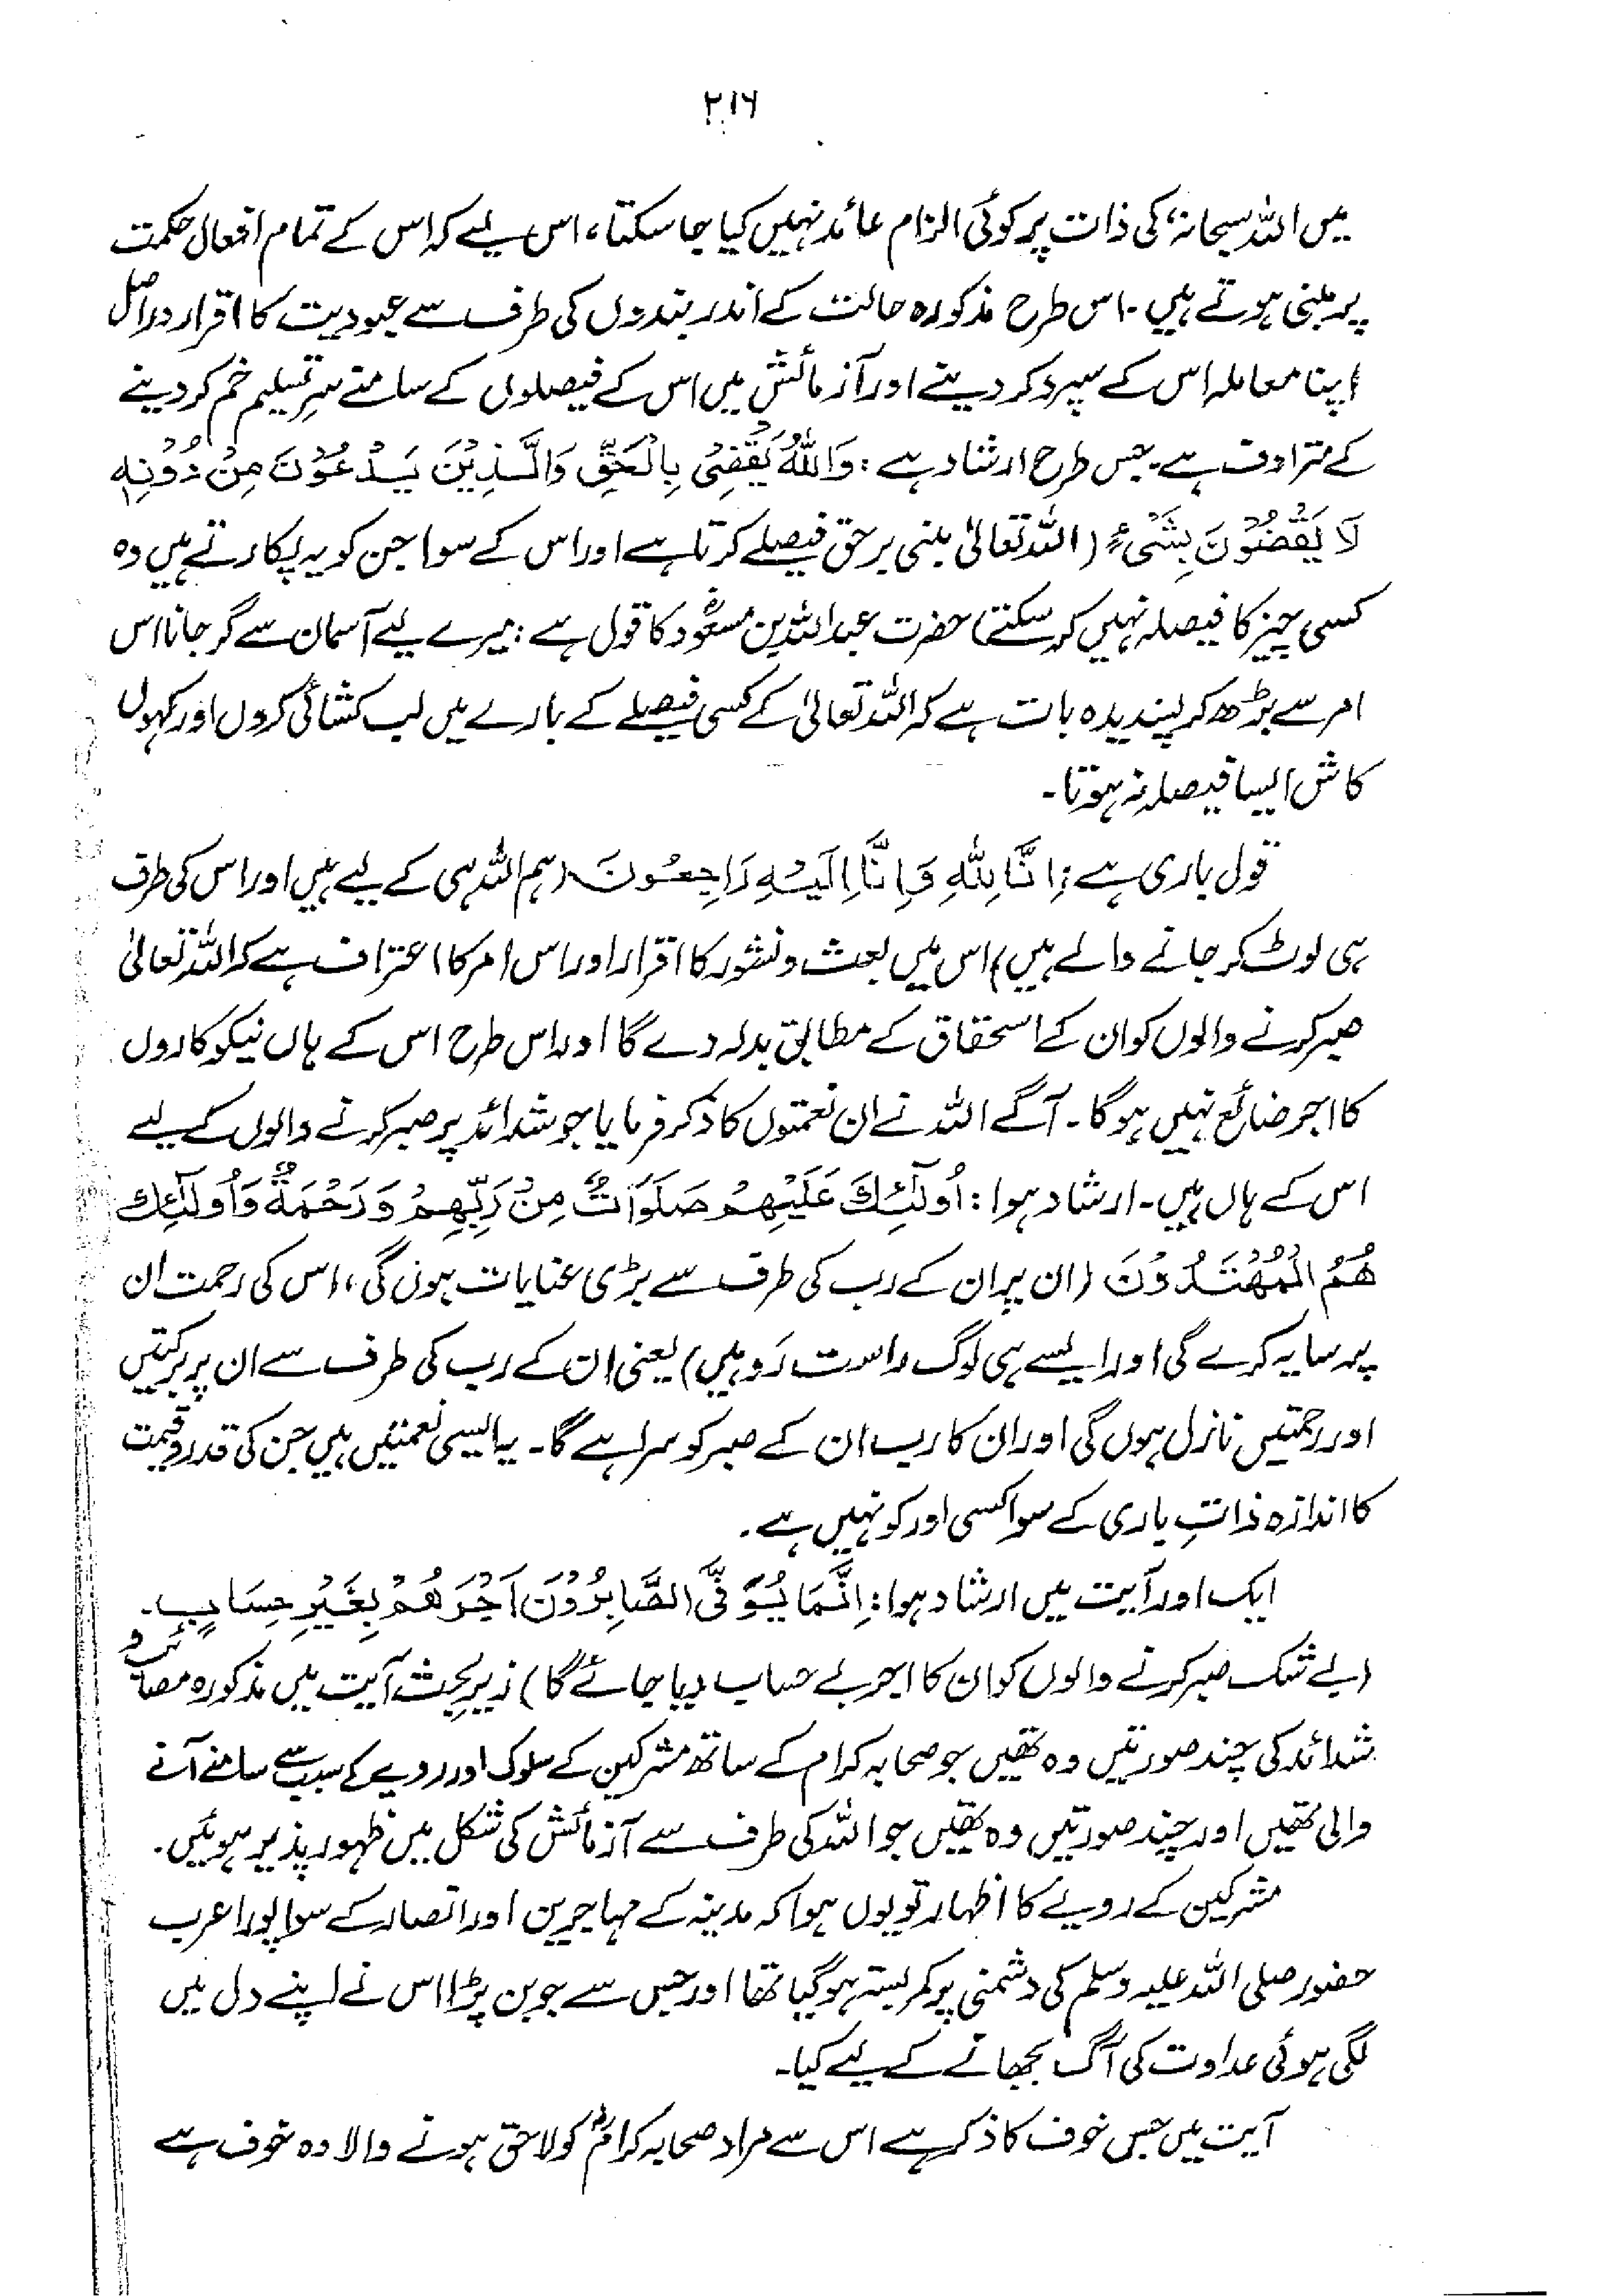 ۲۱۶
میں اللہ سبحانہ، کی ذات پر کوئی الزام عائد نہیں کیا جا سکتا، اس لیے کہ اس کے تمام افعال حکمت
پر مبنی ہوتے ہیں۔ اس طرح مذکورہ حالت کے اندر بندوں کی طرف سے عبودیت کا اقرار دراصل
اپنا معاملہ اس کے سپرد کر دینے اور آزمائش میں اس کے فیصلوں کے سامنے سرِ تسلیم خم کر دینے
کے مترادف ہے۔ جس طرح ارشاد ہے: وَاللّٰهُ يَقْضِيْ بِالْحَقِّ وَالَّذِيْنَ يَدْعُوْنَ مِنْ دُوْنِهٖ
لَا يَقْضُوْنَ بِشَيْءٍ (اللہ تعالیٰ مبنی بر حق فیصلے کرتا ہے اور اس کے سوا جن کو یہ پکارتے ہیں وہ
کسی چیز کا فیصلہ نہیں کر سکتے) حضرت عبداللہ بن مسعودؓ کا قول ہے: میرے لیے آسمان سے گر جانا اس
امر سے بڑھ کر پسندیدہ بات ہے کہ اللہ تعالیٰ کے کسی فیصلے کے بارے میں لب کشائی کروں اور کہوں
کاش ایسا فیصلہ نہ ہوتا۔
قول باری ہے: اِنَّا لِلّٰهِ وَاِنَّا اِلَيْهِ رَاجِعُوْنَ (ہم اللہ ہی کے لیے ہیں اور اس کی طرف
ہی لوٹ کر جانے والے ہیں) اس میں بعث و نشور کا اقرار اور اس امر کا اعتراف ہے کہ اللہ تعالیٰ
صبر کرنے والوں کو ان کے استحقاق کے مطابق بدلہ دے گا اور اس طرح اس کے ہاں نیکوکاروں
کا اجر ضائع نہیں ہوگا۔ آگے اللہ نے ان نعمتوں کا ذکر فرمایا جو شدائد پر صبر کرنے والوں کے لیے
اس کے ہاں ہیں۔ ارشاد ہوا: اُولٰٓئِكَ عَلَيْهِمْ صَلَوَاتٌ مِنْ رَبِّهِمْ وَرَحْمَةٌ وَاُولٰٓئِكَ
هُمُ الْمُهْتَدُوْنَ (ان پر ان کے رب کی طرف سے بڑی عنایات ہوں گی، اس کی رحمت ان
پر سایہ کرے گی اور ایسے ہی لوگ راست رَو ہیں) یعنی ان کے رب کی طرف سے ان پر برکتیں
اور رحمتیں نازل ہوں گی اور ان کا رب ان کے صبر کو سراہے گا۔ یہ ایسی نعمتیں ہیں جن کی قدر و قیمت
کا اندازہ ذاتِ باری کے سوا کسی اور کو نہیں ہے۔
ایک اور آیت میں ارشاد ہوا: اِنَّمَا يُوَفَّى الصَّابِرُوْنَ اَجْرَهُمْ بِغَيْرِ حِسَابٍ۔
(بے شک صبر کرنے والوں کو ان کا اجر بے حساب دیا جائے گا) زیر بحث آیت میں مذکورہ مصائب و
شدائد کی چند صورتیں وہ تھیں جو صحابہ کرام کے ساتھ مشرکین کے سلوک اور رویے کے سبب سے سامنے آنے
والی تھیں اور چند صورتیں وہ تھیں جو اللہ کی طرف سے آزمائش کی شکل میں ظہور پذیر ہوئیں۔
مشرکین کے رویے کا اظہار تو یوں ہوا کہ مدینہ کے مہاجرین اور انصار کے سوا پورا عرب
حضور صلی اللہ علیہ وسلم کی دشمنی پر کمربستہ ہو گیا تھا اور جس سے جو بن پڑا اس نے اپنے دل میں
لگی ہوئی عداوت کی آگ بجھانے کے لیے کیا۔
آیت میں جس خوف کا ذکر ہے اس سے مراد صحابہ کرامؓ کو لاحق ہونے والا وہ خوف ہے